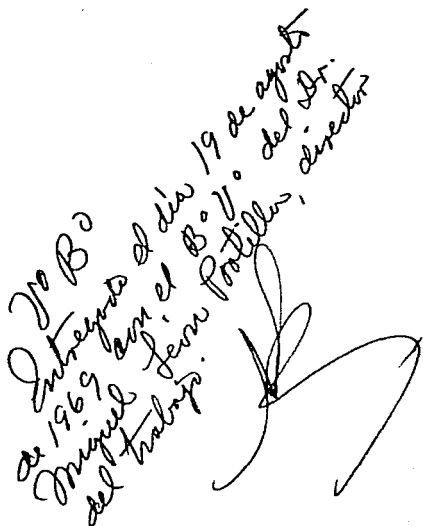 Vº Bº
Entregado el día 19 de agosto
de 1969 con el Bº Vº del Dr.
Miguel León Portilla, director
del trabajo.